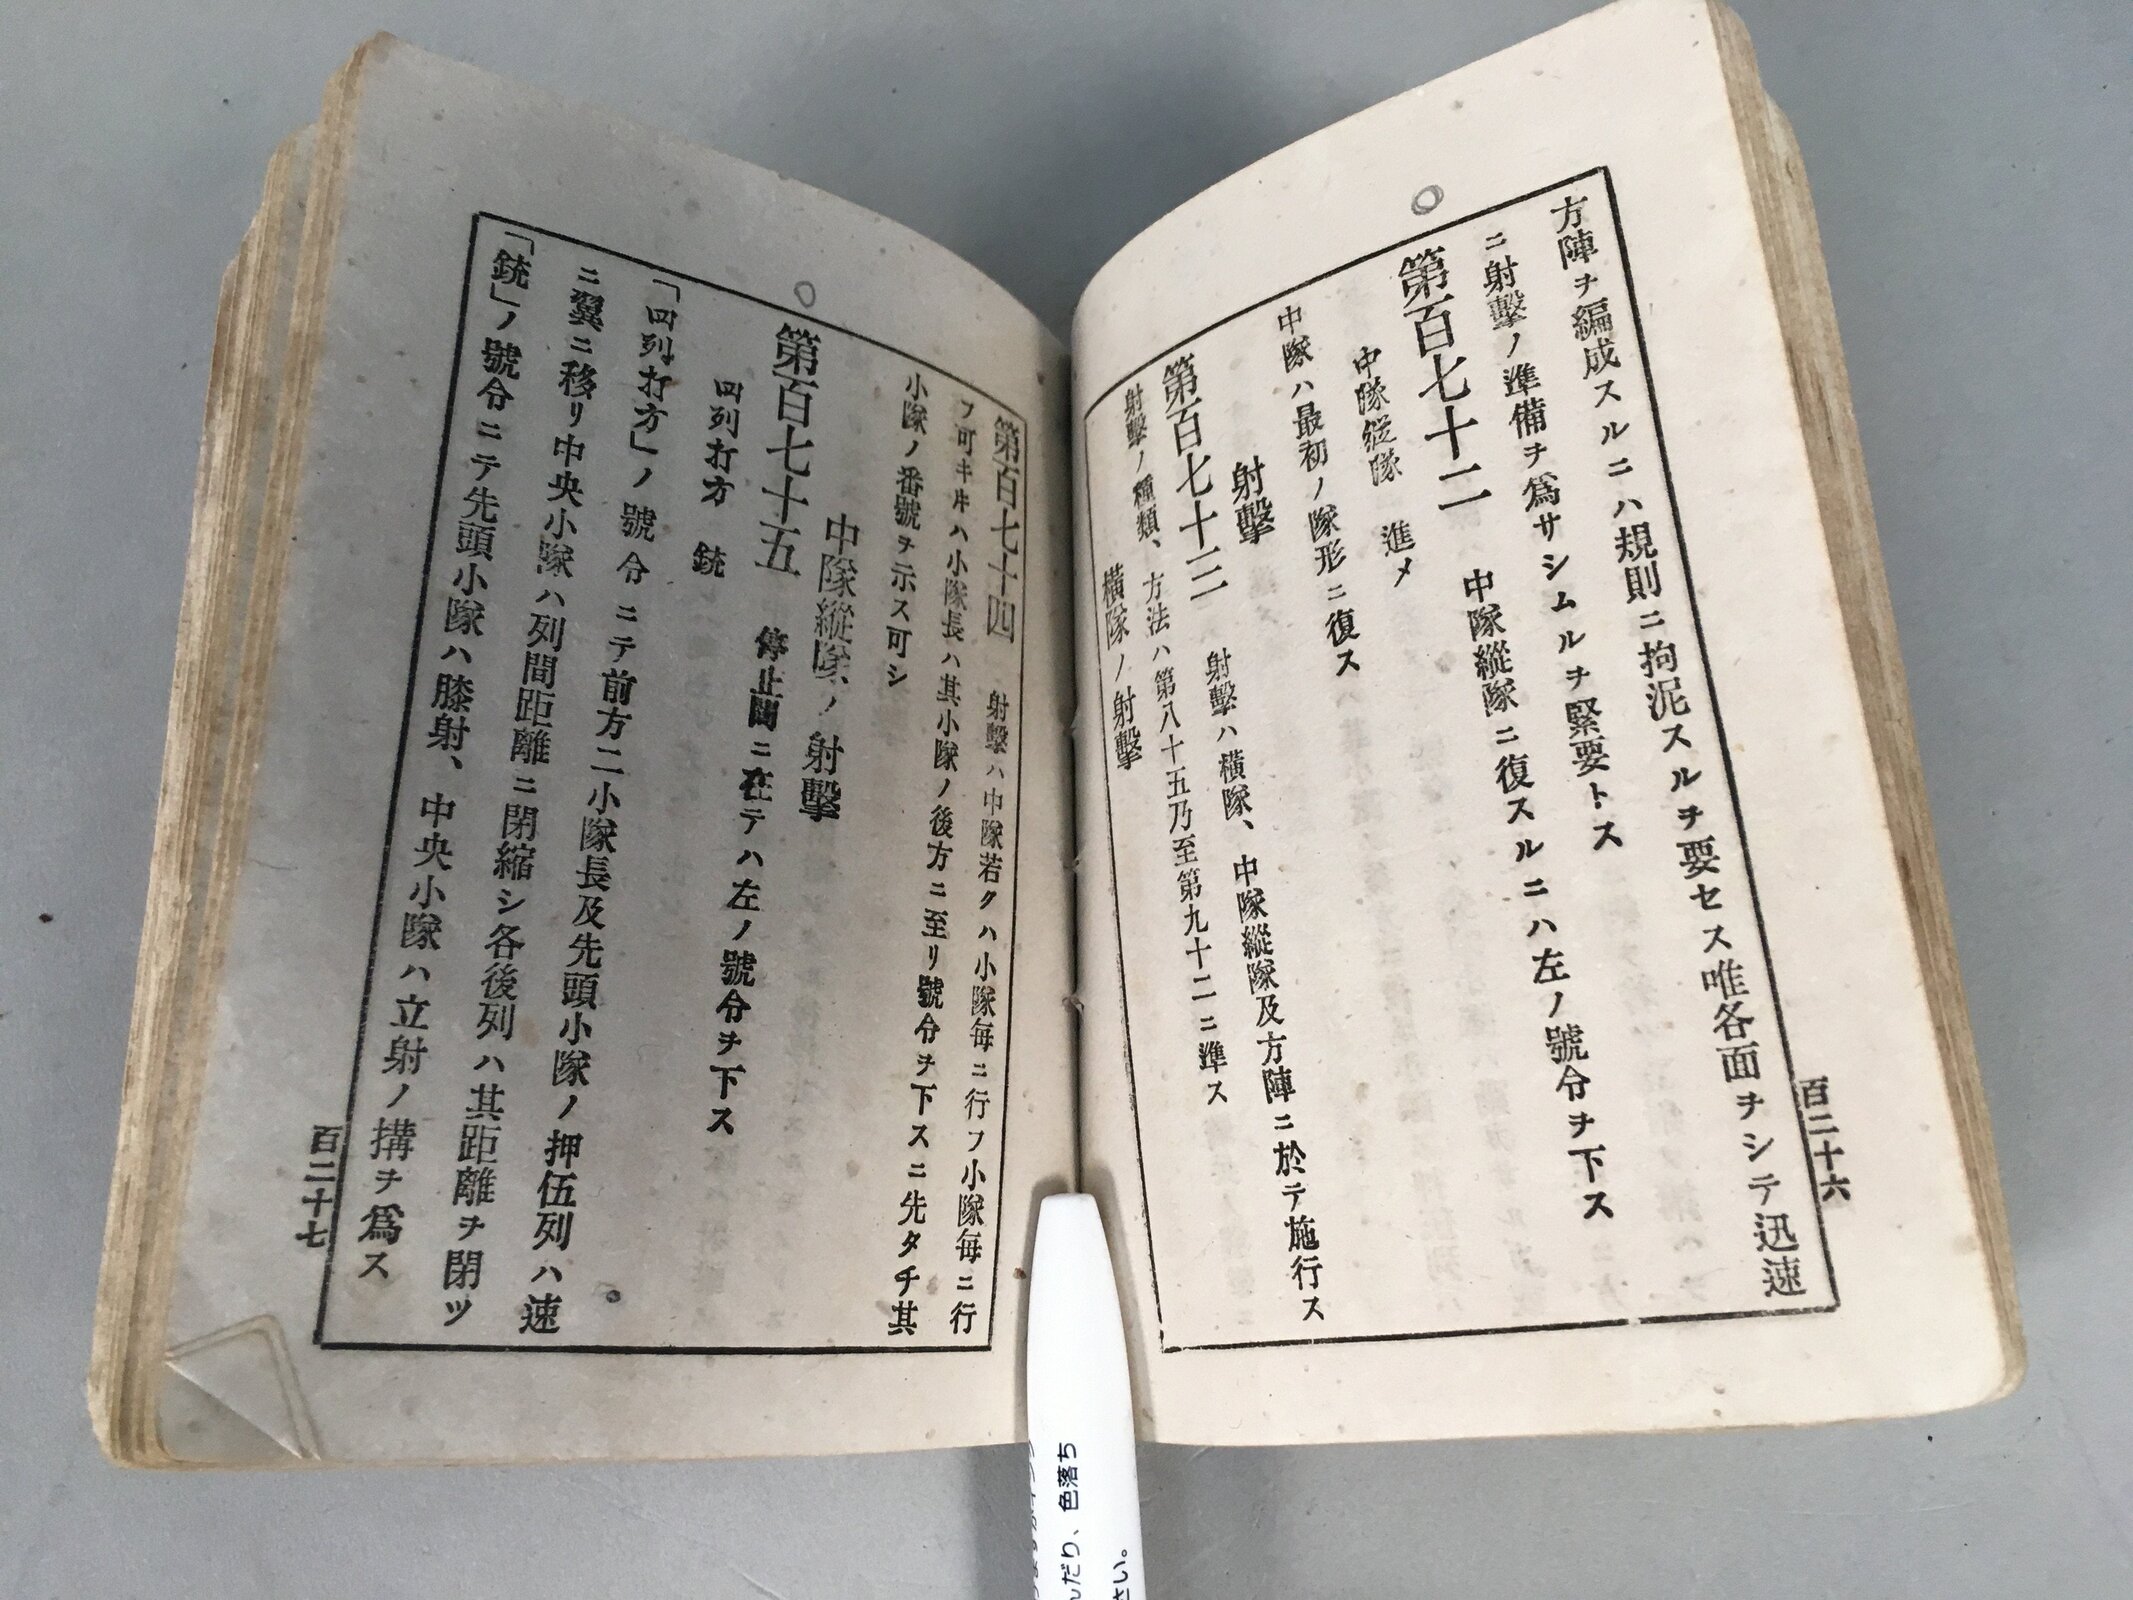 百二十六
方陣ヲ編成スルニハ規則ニ拘泥スルヲ要セス唯各面ヲシテ迅速
ニ射擊ノ準備ヲ爲サシムルヲ緊要トス
第百七十二　中隊縱隊ニ復スルニハ左ノ號令ヲ下ス
中隊縱隊　進メ
中隊ハ最初ノ隊形ニ復ス
射擊
第百七十三　射擊ハ橫隊、中隊縱隊及方陣ニ於テ施行ス
射擊ノ種類、方法ハ第八十五乃至第九十二ニ準ス
橫隊ノ射擊
第百七十四　射擊ハ中隊若クハ小隊每ニ行フ小隊每ニ行
フ可キヰハ小隊長ハ其小隊ノ後方ニ至リ號令ヲ下スニ先タチ其
小隊ノ番號ヲ示ス可シ
中隊縱隊ノ射擊
第百七十五　停止間ニ在テハ左ノ號令ヲ下ス
四列打方　銃
「四列打方」ノ號令ニテ前方二小隊長及先頭小隊ノ押伍列ハ速
ニ翼ニ移リ中央小隊ハ列間距離ニ閉縮シ各後列ハ其距離ヲ閉ツ
「銃」ノ號令ニテ先頭小隊ハ膝射、中央小隊ハ立射ノ搆ヲ爲ス
百二十七
んだり、色落ち
さい。